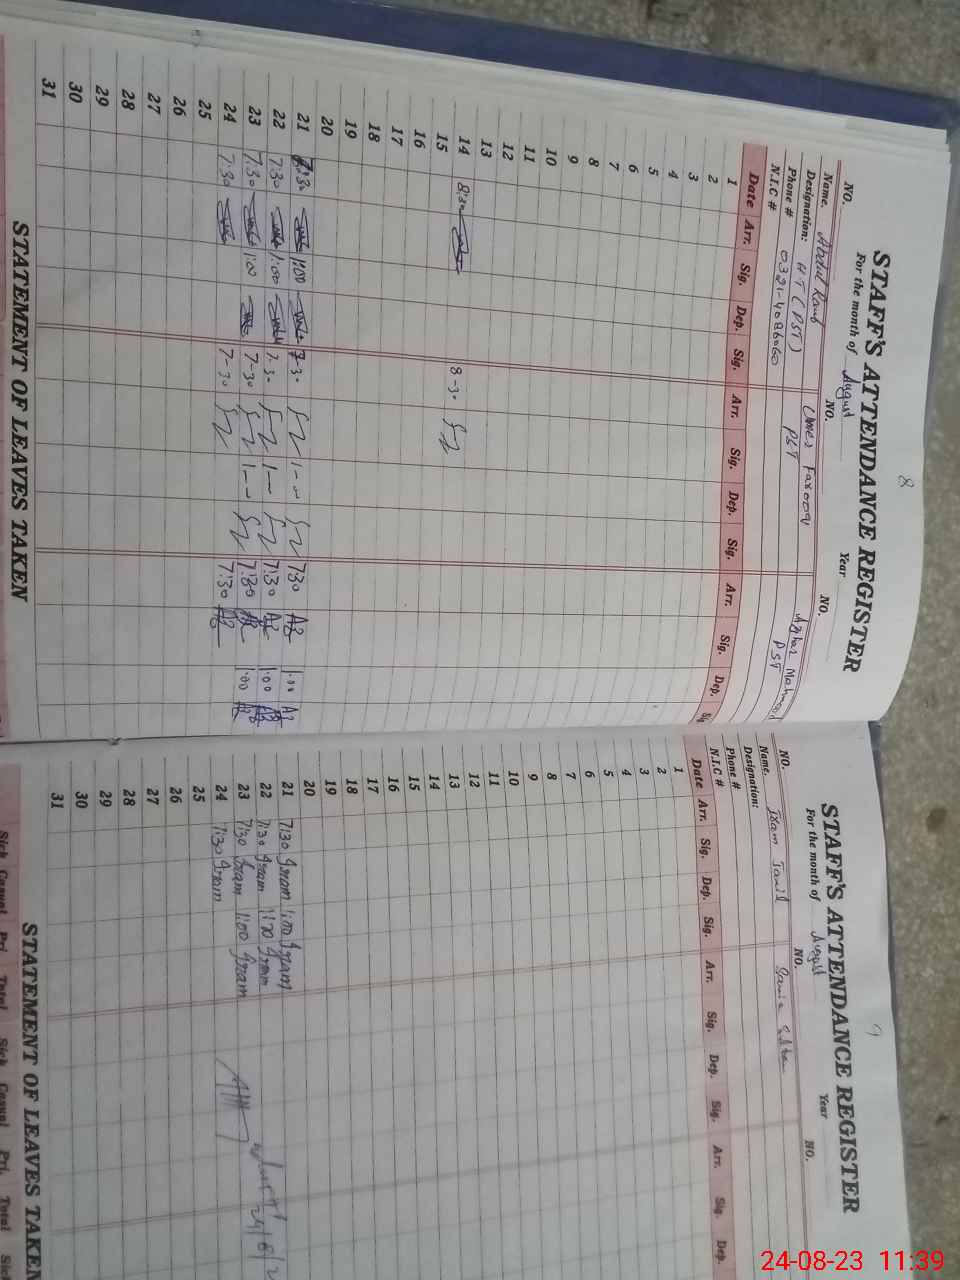 8
STAFF'S ATTENDANCE REGISTER
For the month of August Year
NO. NO. NO.
Name. Abdul Rauf Umer Farooq Azhar Mahmood
Designation: HT (PST) PST PST
Phone # 0321-4086060
N.I.C #
Date Arr. Sig. Dep. Sig. Arr. Sig. Dep. Sig. Arr. Sig. Dep.
1
2
3
4
5
6
7
8
9
10
11
12
13
14 8:30 8-30
15
16
17
18
19
20
21 7:30 1:00 7-30 1-00 7:30 AZ 1:00 AZ
22 7:30 1:00 7-30 1-00 7:30 AZ 1:00 AZ
23 7:30 1:00 7-30 1-00 7:30 AZ 1:00 AZ
24 7:30 7-30 7:30 AZ
25
26
27
28
29
30
31
STATEMENT OF LEAVES TAKEN
9
STAFF'S ATTENDANCE REGISTER
For the month of August Year
NO. NO. NO.
Name. Iram Jamil
Designation:
Phone #
N.I.C #
Date Arr. Sig. Dep. Sig. Arr. Sig. Dep. Sig. Arr. Sig. Dep.
1
2
3
4
5
6
7
8
9
10
11
12
13
14
15
16
17
18
19
20
21 7:30 Iram 1:00 Iram
22 7:30 Iram 1:00 Iram
23 7:30 Iram 1:00 Iram
24 7:30 Iram
25
26
27
28
29
30
31
STATEMENT OF LEAVES TAKEN
Sick Casual Pri. Total Sick Casual Pri. Total
24-08-23 11:39